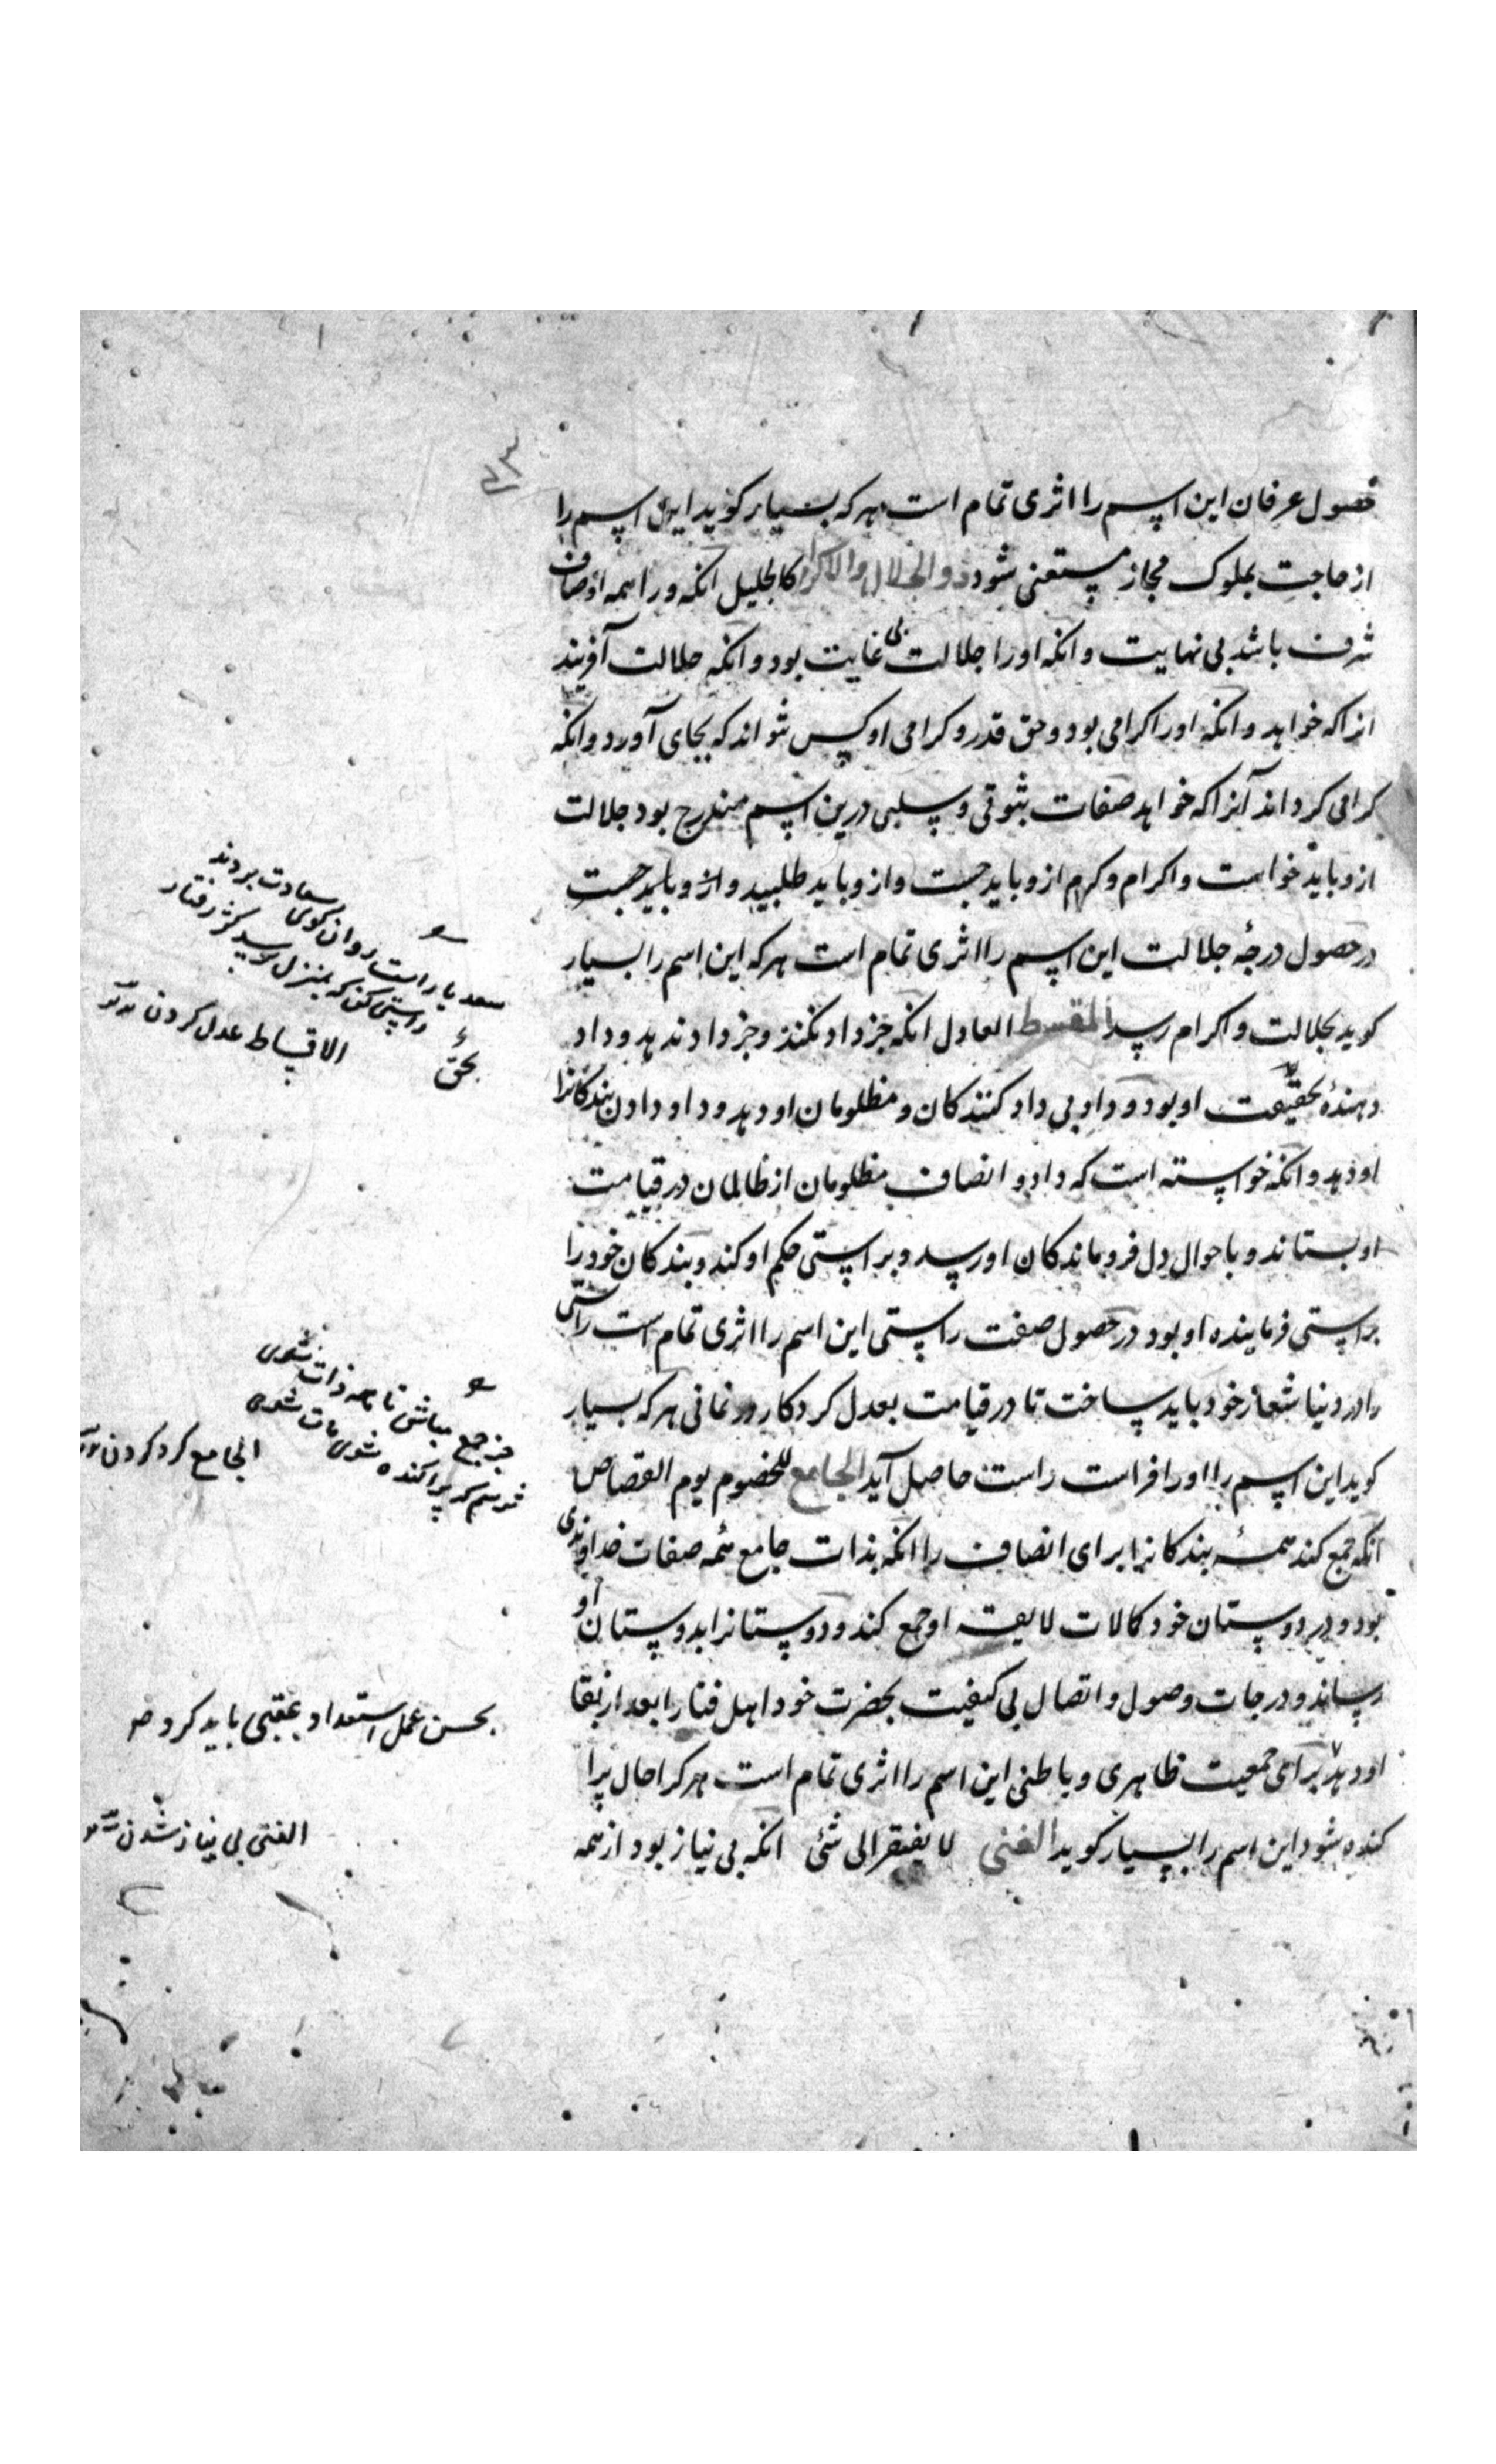 ۷۳
حصول عرفان این اسم را اثری تمام است هر که بسیار کوید این اسم را
از حاجت بملوک مجاز مستغنی شود ذو الجلال والاکرام کالجلیل انکه ورا همه اوصاف
شرف باشد بی نهایت و انکه اورا جلالت بی غایت بود و انکه جلالت آفریند
انرا که خواهد و انکه اورا کرامی بود و حق قدر و کرامی او کس نتواند که بجای آورد و انکه
کرامی کرداند آنرا که خواهد صفات ثبوتی و سلبی درین اسم مندرج بود جلالت
ازو باید خواست و اکرام و کرم ازو باید جست و ازو باید طلبید و ازو باید جست
در حصول درجهٔ جلالت این اسم را اثری تمام است هر که این اسم را بسیار
کوید بجلالت و اکرام رسد المقسط العادل انکه جز داد نکند و جز داد ندهد و داد
دهندهٔ بحقیقت او بود و داد بی داد کنندکان و مظلومان او دهد و داد دادن بندکانرا
او دهد و انکه خواسته است که داد و انصاف مظلومان از ظالمان در قیامت
او بستاند و باحوال دل فروماندکان او رسد و براستی حکم او کند و بندکان خود را
براستی فرماینده او بود در حصول صفت راستی این اسم را اثری تمام است راستی
را در دنیا شعار خود باید ساخت تا در قیامت بعدل کردکار در نمانی هر که بسیار
کوید این اسم را اورا فراست راست حاصل آید الجامع للخصوم یوم القصاص
انکه جمع کند همهٔ بندکانرا برای انصاف را انکه بذات جامع همه صفات خداوندی
بود و در دوستان خود کمالات لایقه او جمع کند و دوستانرا بدوستان او
رساند و درجات وصول و اتصال بی کیفیت بحضرت خود اهل فنا را بعد از بقا
او دهد برای جمعیت ظاهری و باطنی این اسم را اثری تمام است هر کرا حال پرا
کنده شود این اسم را بسیار کوید الغنی لا یفتقر الی شئ انکه بی نیاز بود از همه
سعدیا راست روان کوی سعادت بردند
راستی کن که بمنزل نرسد کژ رفتار
بحق
الاقساط عدل کردن
جز جمع مباش تا همه ذات شوی
ترسم که پراکنده شوی مات شوی
الجامع کرد کردن
بحسن عمل استعداد عقبی باید کرد
الغنی بی نیاز شدن